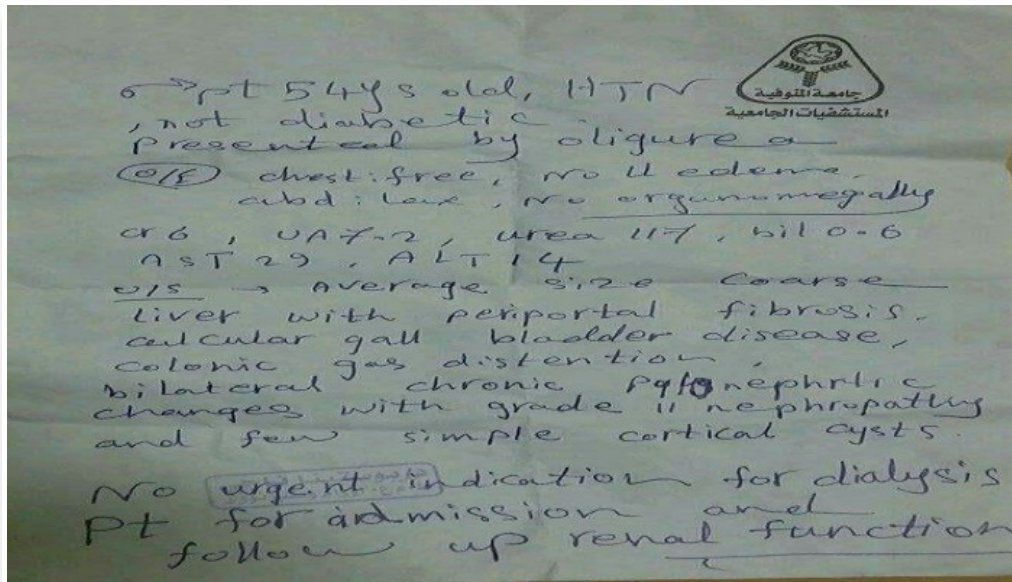 جامعة المنوفية
المستشفيات الجامعية
♂ pt 54ys old, HTN
, not diabetic
presented by oligurea
O/E chest: free, no ll edema,
abd: lax, no organomegally
cr 6, UA 7.2, urea 117, bil 0.6
AST 29, ALT 14
U/S → Average size coarse
liver with periportal fibrosis.
calcular gall bladder disease,
colonic gas distention,
bilateral chronic pylonephritic
changes with grade II nephropathy
and few simple cortical cysts.
No urgent indication for dialysis
Pt for admission and
follow up renal function